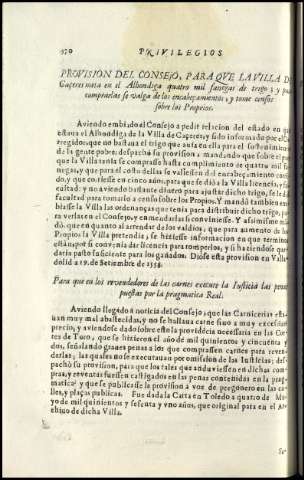 370 PRIVILEGIOS
PROVISION DEL CONSEJO, PARA QVE LA VILLA D
Caçeres meta en el Alhondiga quatro mil fanegas de trigo, y para
comprarlas se valga de los encabeçamientos, y tome censos
sobre los Propios.
Aviendo embiado al Consejo a pedir relacion del estado en que
estaua el Alhondiga de la Villa de Caçeres, y sido informado por el Co-
rregidor, que no bastaua el trigo que auia en ella para el sustentamiento
de la gente pobre, despachò su prouision, mandando que sobre el pan
que la Villa tenia se comprasse hasta cumplimiento de quatro mil fa-
negas, y que para el costo dellas se valiessen del encabeçamiento corri-
do, y que corriesse en cinco años, para que se diò a la Villa licencia, y
caso, que no fuesse bastante dinero para ajustar dicho trigo, se le diò
facultad para tomarlo a censo sobre los Propios. Y mandò tambien em-
biasse la Villa las ordenanças que tenia para distribuir dicho trigo, pa-
ra verlas en el Consejo, y enmendarlas si conviniesse. Y assimismo man-
dò, que en quanto al arrendar de los valdios, que para aumento de los
Propios la Villa pretendia, se hiziesse informacion en que termino
estàn, por si convenia dar licencia para romperlos, y si haziendose que-
daria pasto suficiente para los ganados. Diòse esta provision en Valla-
dolid a 19. de Setiembre de 1556.
Para que en los revendedores de las carnes execute la Iusticia las penas
puestas por la pragmatica Real.
Aviendo llegado a noticia del Consejo, que las Carnicerias est-
uan muy mal abastecidas, y no se hallaua carne sino a muy excessiuo
precio, y aviendose dado sobre esto la providencia necessaria en las Cor-
tes de Toro, que se hizieron el año de mil quinientos y cincuenta y
dos, poniendo grandes penas a los que comprassen carnes para reven-
derlas; las quales no se executauan por omission de las Iusticias; des-
pachò su provision, para que los tales que anduviessen en dichas com-
pras, y reventas fuessen castigados en las penas contenidas en la prag-
matica, y que se publicasse la provision à voz de pregonero en las ca-
lles, y plaças publicas. Fue dada la Carta en Toledo a quatro de Ma-
yo de mil quinientos y sesenta y vno años, que original para en el Ar-
chivo de dicha Villa.